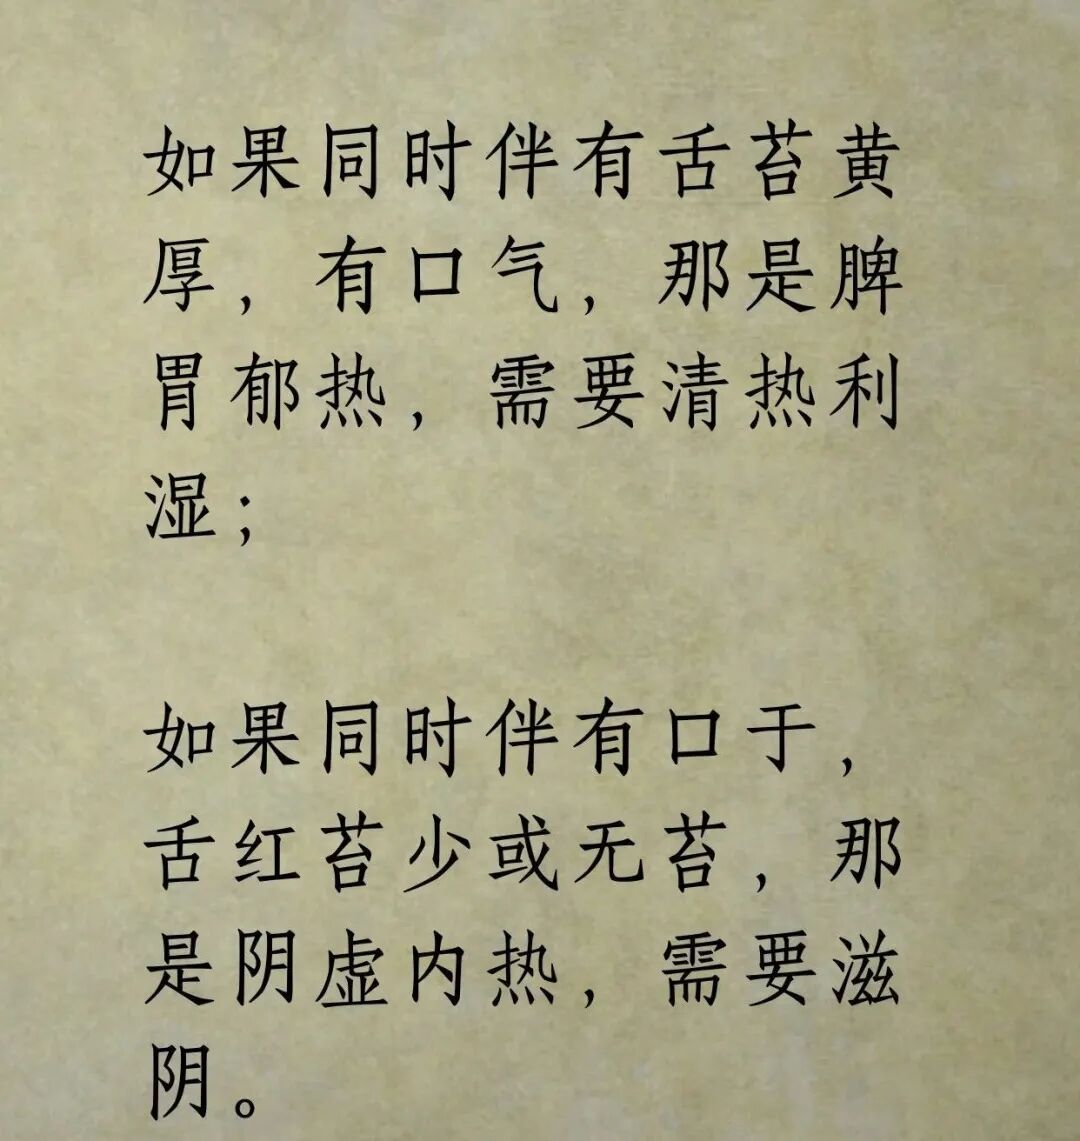 如果同时伴有舌苔黄
厚，有口气，那是脾
胃郁热，需要清热利
湿；
如果同时伴有口于，
舌红苔少或无苔，那
是阴虚内热，需要滋
阴。